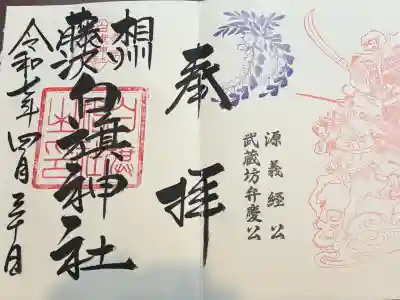 源義経公
武蔵坊弁慶公
奉拝
相州
藤沢
白旗神社
令和七年四月三十日